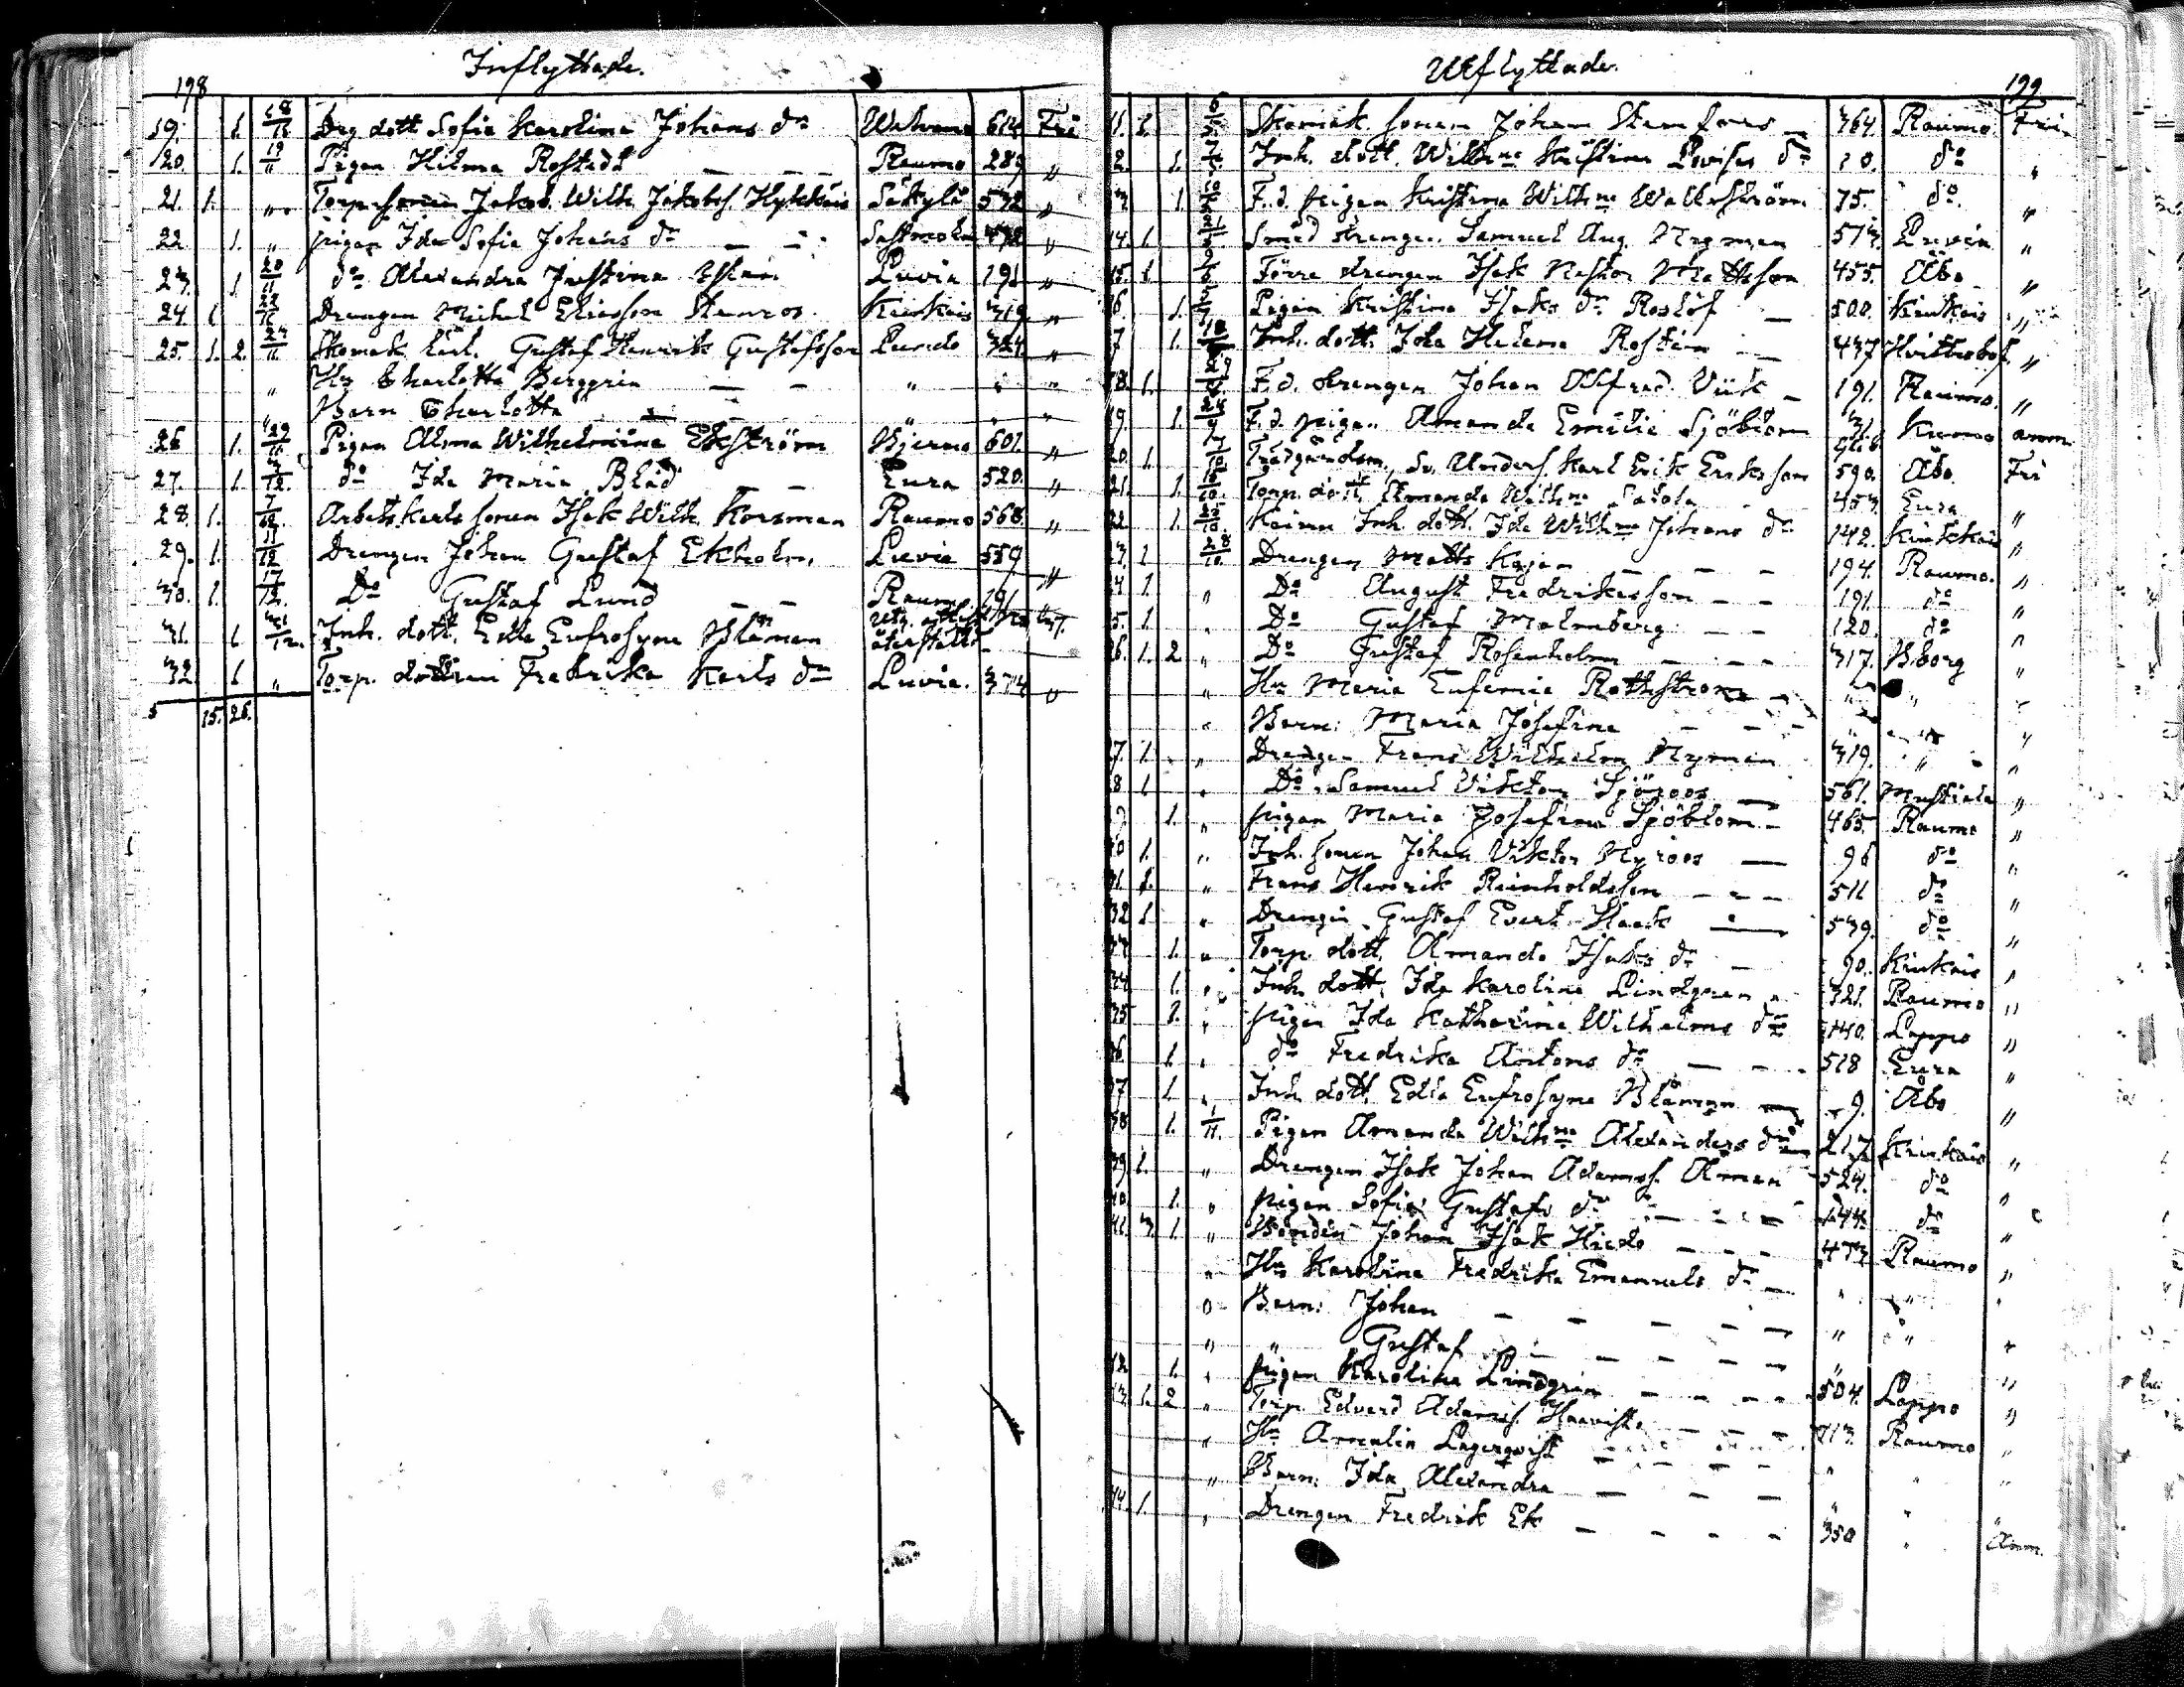 198
Inflyttade.
19. 1. 18/11 Drg dott Sofia Karolina Johans dr 614 Fri
20. 1. 19/" Pigan Hilma Rostedt — — — Raumo 289 "
21. 1. " Torp. sonen Jakob Wilh. Jakobs. Säkylä 532 "
22 1. " pigan Ida Sofia Johans dr — —
23. 1 20/11 do Alexandra Justina Luvia 191 "
24 1 22/11 Drengen Mikel Ericsson Stenros. Kiukais 319 "
25. 1. 2. 24/11 Skomak. lärl. Gustaf Henrik Gustafsson Lundo 324 "
" Hu Charlotta Berggrén — — " " "
Barn Charlotta " " "
26 1. 29/11 Pigan Alma Wilhelmina Ekström Bjerno 601. "
27. 1. do Ida Maria Blåd — — Eura 520. "
28. 1. 7/12. Arbetskarls sonen Isak Wilh. Korsman Raumo 568. "
29. 1. 11/12 Drengen Johan Gustaf Ekholm. Luvia 559 "
30. 1. 17/12. Do Gustaf Lund — — Raumo 191 "
31. 1 31/12. Inh. dott. Edla Eufrosyne Blåman återstäld
32. 1 " Torp. dottren Fredrika Karls dr Luvia. 374 "
15. 26.
Utflyttade.
199
11. 1. Skomak. sonen Johan Stenfors — 364. Raumo Fri
2. 1. Inh. dott. Wilhna Kristina Lovisa dr 10. do "
1. F. d. pigan Kristina Wilhna Wallström 75. do. "
14. 1. Smed drengen Samuel Aug. Nyman 513. Luvia "
15. 1 Förre drengen Isak Nestor Mattsson 455. Åbo "
6. 1. Pigan Kristina Isaks dr Roslöf — 500. Kiukais "
7 1. Inh. dott. Ida Helena Rostén — 437 Hvittisbof. "
18. 1. F. d. drengen Johan Alfred Viik — 191. Raumo. "
19. 1. F. d. pigan Amanda Emilia Sjöblom Kumo anm.
20. 1. Trädgårdsm. Anders. Karl Erik Eriksson 590. Åbo Fri
21. 1. Torp. dott. Amanda Wilhna Satola 453. Eura "
22 1. Inh. dott. Ida Wilhna Johans dr 142. Kiukais "
23. 1 28/10. Drengen Matts Kajan — — — 194. Raumo. "
24 1. " Do August Fredriksson — — 191. do "
5. 1 " Do Gustaf Malmberg — — 120. do "
26. 1. 2 " Do Gustaf Rosenholm — — 317. Wborg "
" Hu Maria Eufemia Rothström — " " "
" Barn: Maria Josefina — — — " " "
7. 1 " Drengen Frans Wilhelm Nyman 319. " "
8 1 " Do Samuel Viktor Sjöroos — 561. Mustiala "
1. " pigan Maria Josefina Sjöblom — 465. Raumo "
1. " Inh. sonen Johan Viktor Nyroos — 96 do "
31. 1. " Frans Henrik Reinholdsson — — — 511 do "
32 1 " Drengen Gustaf Evert Haak — 539. do "
1. " Torp. dott. Amanda Isaks dr — 90. Kiukais "
34 1. " Inh. dott. Ida Karolina Lindgren " 321. Raumo "
35 1. " pigan Ida Katharina Wilhelms dr 140. Lappo "
36. 1. " do Fredrika Antons dr — — 518 Eura "
37 1. " Inh. dott. Edla Eufrosyne Blåman — 9. Åbo "
38 1. 1/11. Pigan Amanda Wilhna Alexanders dr 217 Kiukais "
39 1. " Drengen Isak Johan Adams. Åman 524. do "
40. 1. " pigan Sofia Gustafs dr — — — 144. do "
41. 3. 1. " Bonden Johan Isak Hiedo — — — 473 Raumo "
" Hu Karolina Fredrika Emanuels dr — " " "
" Barn: Johan — — — — — " " "
" " Gustaf — — — — — " "
42 1. " pigan Karolina Lindgrén — — — 504. Lappo "
43. 1. 2 " Torp. Edvard Adams. Haavisto — — — 313. Raumo "
" Hu Amalia Lagerqvist — — — " " "
" Barn: Ida Alexandra — — — " " "
44. 1. " Drengen Fredrik Ek — — — — 350 " Anm.